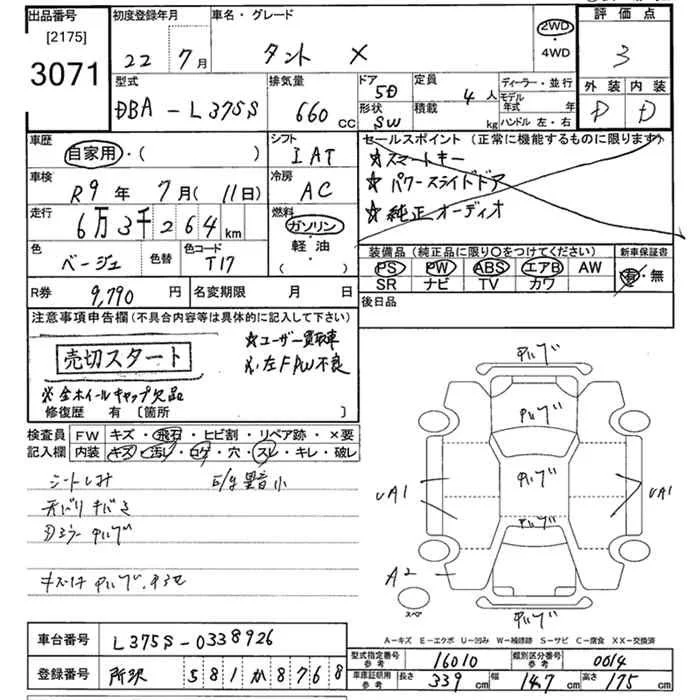 出品番号
[2175]
3071
初度登録年月
22 7月
車名・グレード
タント X
2WD
・4WD
評価点
3
外装 内装
D D
型式
DBA-L375S
排気量
660 CC
ドア 5D
形状 SW
定員 4人
積載 kg
ディーラー・並行
モデル年式 年
ハンドル 左・右
車歴
自家用・( )
シフト
IAT
セールスポイント (正常に機能するものに限ります)
☆スマートキー
☆パワースライドドア
☆純正オーディオ
車検
R9年 7月(11日)
冷房
AC
走行
6万3千264km
燃料
ガソリン
軽油
( ・ )
色
ベージュ 色替
色コード
T17
装備品 (純正品に限り○をつけてください)
PS PW ABS エアB AW
SR ナビ TV カワ
新車保証書
有・無
R券 9,790円
名変期限 月 日
後日品
注意事項申告欄(不具合内容等は具体的に記入して下さい)
売切スタート
☆ユーザー買取車
※左FPW不良
※全ホイールキャップ欠品
修復歴 有 [箇所 ]
検査員
記入欄
FW キズ・飛石・ヒビ割・リペア跡・×要
内装 キズ・汚れ・コゲ・穴・スレ・キレ・破レ
シートしみ
E/g 異音小
UA1
UA1
A2
スペア
A-キズ E-エクボ U-凹み W-補修跡 S-サビ C-腐食 XX-交換済
車台番号 L375S-0338926
登録番号 所沢 581か8768
型式指定番号 参考 16010
類別区分番号 参考 0014
車庫証明用 参考 長さ 339cm 幅 147cm 高さ 175cm